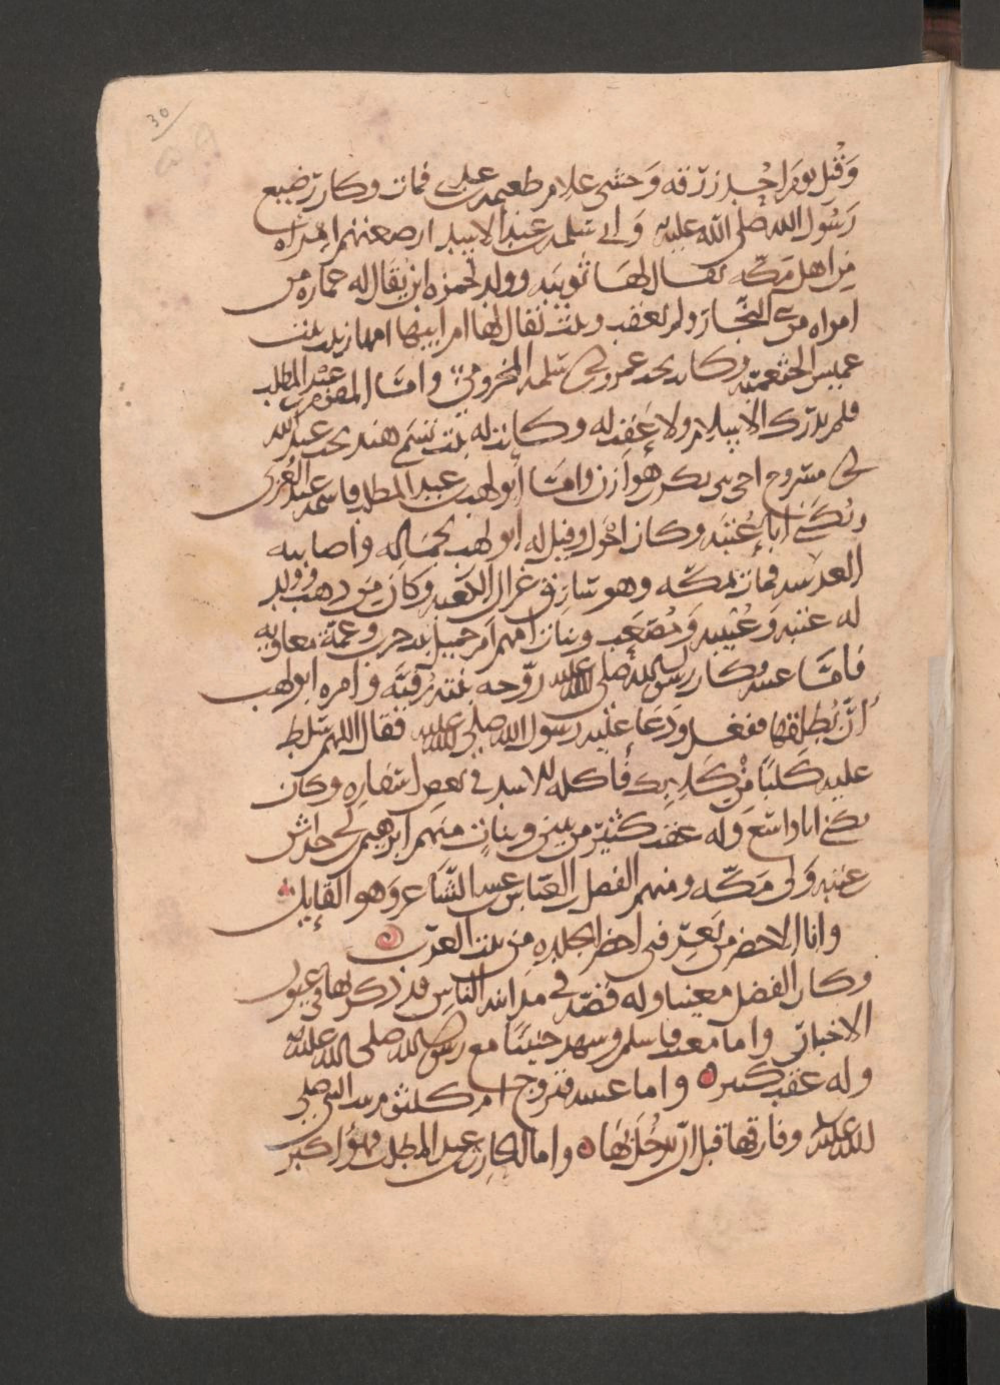 30
وقتل يوم احد زرقه وحشي غلام طعيمه بن عدي فمات وكان رضيع
رسول الله صلى الله عليه وابي سلمه بن عبد الاسد ارضعتهم امراه
من اهل مكه يقال لها ثويبه وولد لحمزه ابن يقال له عماره من
امراه من بني النجار ولم يعقب وبنت يقال لها ام ابيها امها زينب بنت
عميس الخثعميه وكانت تحت عمرو بن ابي سلمه المخزومي واما المقوم بن عبد المطلب
فلم يدرك الاسلام ولا عقب له وكانت له بنت تسمى هند تحت عبد الله
بن ابي مسروح اخي بني سعد بن بكر هوازن واما ابو لهب بن عبد المطلب فاسمه عبد العزى
ويكنى ابا عتبه وكان احول وقيل له ابو لهب لجماله واصابته
العدسه فمات بمكه وهو سارق غزال الكعبه وكان من ذهب وولد
له عتبه وعتيبه ومعتب وبنات امهم ام جميل بنت حرب وعمة معاويه
فاما عتبه فكان رسول الله صلى الله عليه زوجه بنته رقيه وامره ابو لهب
ان يطلقها ففعل ودعا عليه رسول الله صلى الله عليه فقال اللهم سلط
عليه كلبا من كلابك فاكله الاسد في بعض اسفاره وكان
يكنى ابا واسع وله عقب كثير من بنين وبنات منهم ابرهيم بن ابي خداش
عتبه ولي مكه ومنهم الفضل بن العباس بن عتبه الشاعر وهو القايل
وانا الاخضر من يعرفني اخضر الجلده من بيت العرب
وكان الفضل مغنيا وله قصه في مداينه الناس قد ذكرتها في عيون
الاخبار واما معتب فاسلم وشهد حنينا مع رسول الله صلى الله عليه
وله عقب كثير واما عتيبه فتزوج ام كلثوم بنت النبي صلى
الله عليه وفارقها قبل ان يدخل بها واما الحارث بن عبد المطلب فهو اكبر